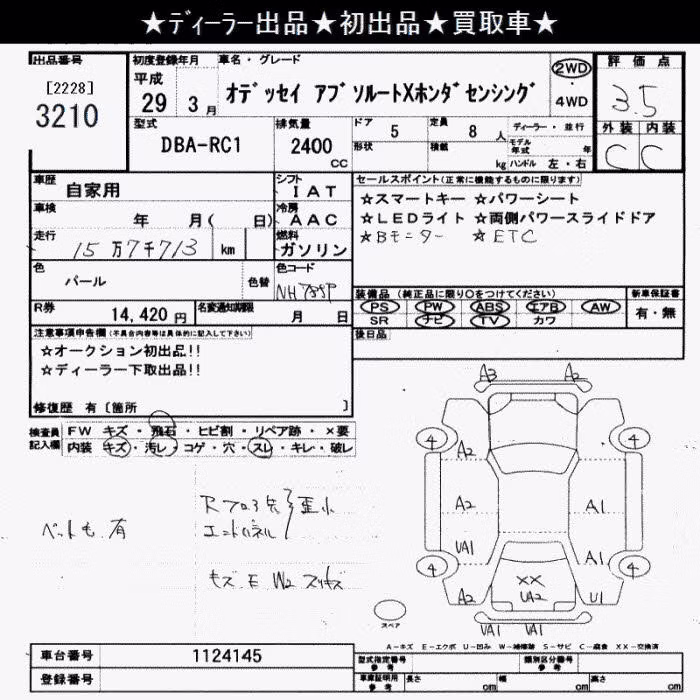 ★ディーラー出品★初出品★買取車★
出品番号
[2228]
3210
初度登録年月
平成
29 3月
車名・グレード
オデッセイ アブソルートXホンダセンシング
2WD
・
4WD
評価点
3.5
外装 内装
C C
型式
DBA-RC1
排気量
2400
CC
ドア 5
形状
定員 8 人
積載 kg
ディーラー・並行
モデル年式 年
ハンドル 左・右
車歴
自家用
シフト
IAT
車検
年 月( 日)
冷房
AAC
走行
15万7千713 km
燃料
ガソリン
色
パール
色替
色コード
NH788P
R券
14,420円
名変通知期限
月 日
セールスポイント(正常に機能するものに限ります)
☆スマートキー ☆パワーシート
☆LEDライト ☆両側パワースライドドア
☆Bモニター ☆ETC
装備品 (純正品に限り○をつけてください)
新車保証書
PS PW ABS エアB AW
SR ナビ TV カワ
有・無
後日品
注意事項申告欄(不具合内容等は具体的に記入して下さい)
☆オークション初出品!!
☆ディーラー下取出品!!
修復歴 有 [箇所 ]
検査員記入欄
FW キズ・飛石・ヒビ割・リペア跡・×要
内装 キズ・汚レ・コゲ・穴・スレ・キレ・破レ
ペット毛 有
Rフロア先
エンドパネル
歪小
キズ E W2 スリキズ
A3 A2
4 4
A2
A2 A1
UA1 A1
4 4
A2 XX UA2 U1
UA1 UA1
スペア
A-キズ E-エクボ U-凹み W-補修跡 S-サビ C-腐食 XX-交換済
車台番号 1124145
登録番号
型式指定番号 参考
類別区分番号 参考
車庫証明用 参考 長さ cm 幅 cm 高さ cm